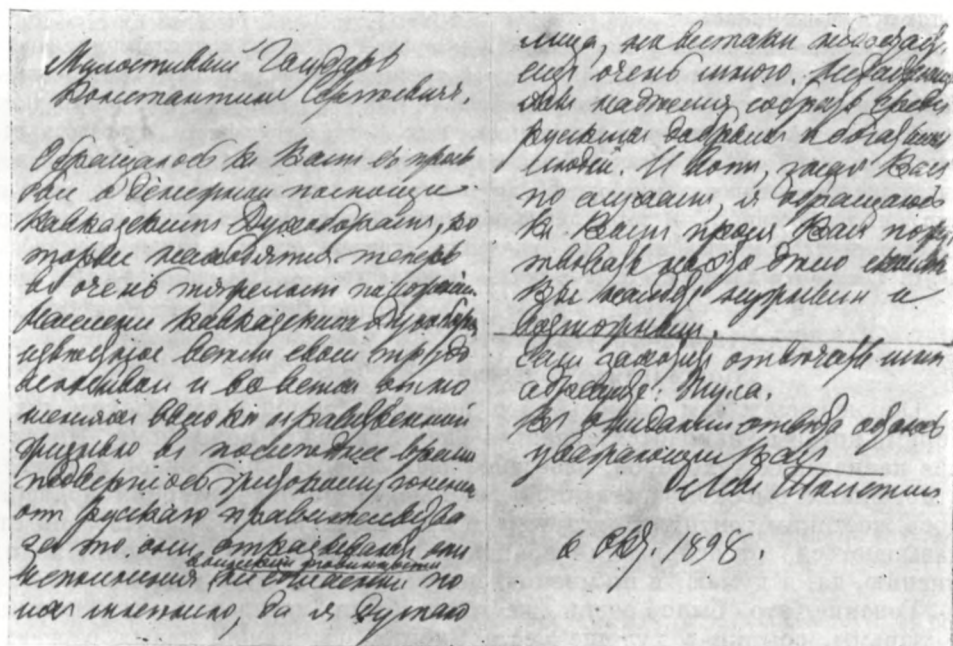 Милостивый Государь
Константинъ Сергѣевичъ.
Обращаюсь къ Вамъ съ прось
бой о денежной помощи
Кавказскимъ Духоборамъ, ко
торые находятся теперь
въ очень тяжеломъ положеніи.
Населеніе Кавказскихъ Духоборъ
извѣстное всѣмъ своимъ трудо
и во всѣхъ отно
шеніяхъ высоко нравственной
жизнью въ послѣднее время
подверглось гоненію
отъ русскаго правительства
за то, что они отказывались отъ
исполненія воинской повинности
лица, но всетаки недостаетъ
еще очень много.
мы надѣемся собрать среди
русскихъ добрыхъ и богатыхъ
людей. И вотъ, зная Васъ
по слухамъ, я обращаюсь
къ Вамъ прося Васъ
на это дѣло сколько
Вы найдете нужнымъ и
возможнымъ.
Если захотите отвѣчать мнѣ
адресуйте: Тула.
Въ ожиданіи отвѣта остаюсь
уважающій Васъ
Левъ Толстой
6 Окт. 1898.